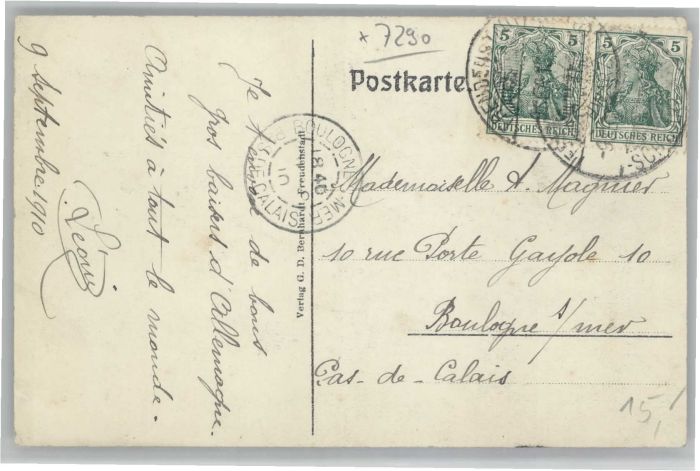 * 7290
Postkarte
5 5
DEUTSCHES REICH DEUTSCHES REICH
9 septembre 1910
Je t'envoie de bons
gros baisers d'Allemagne
Amitiés à tout le monde.
Léonie
BOULOGNE-S-MER
PAS-DE-CALAIS
18 40
10
Verlag G. D. Bernhardt, Freudenstadt
Mademoiselle A. Magnier
10 rue Porte Gayole 10
Boulogne s/mer
Pas-de-Calais
15,-